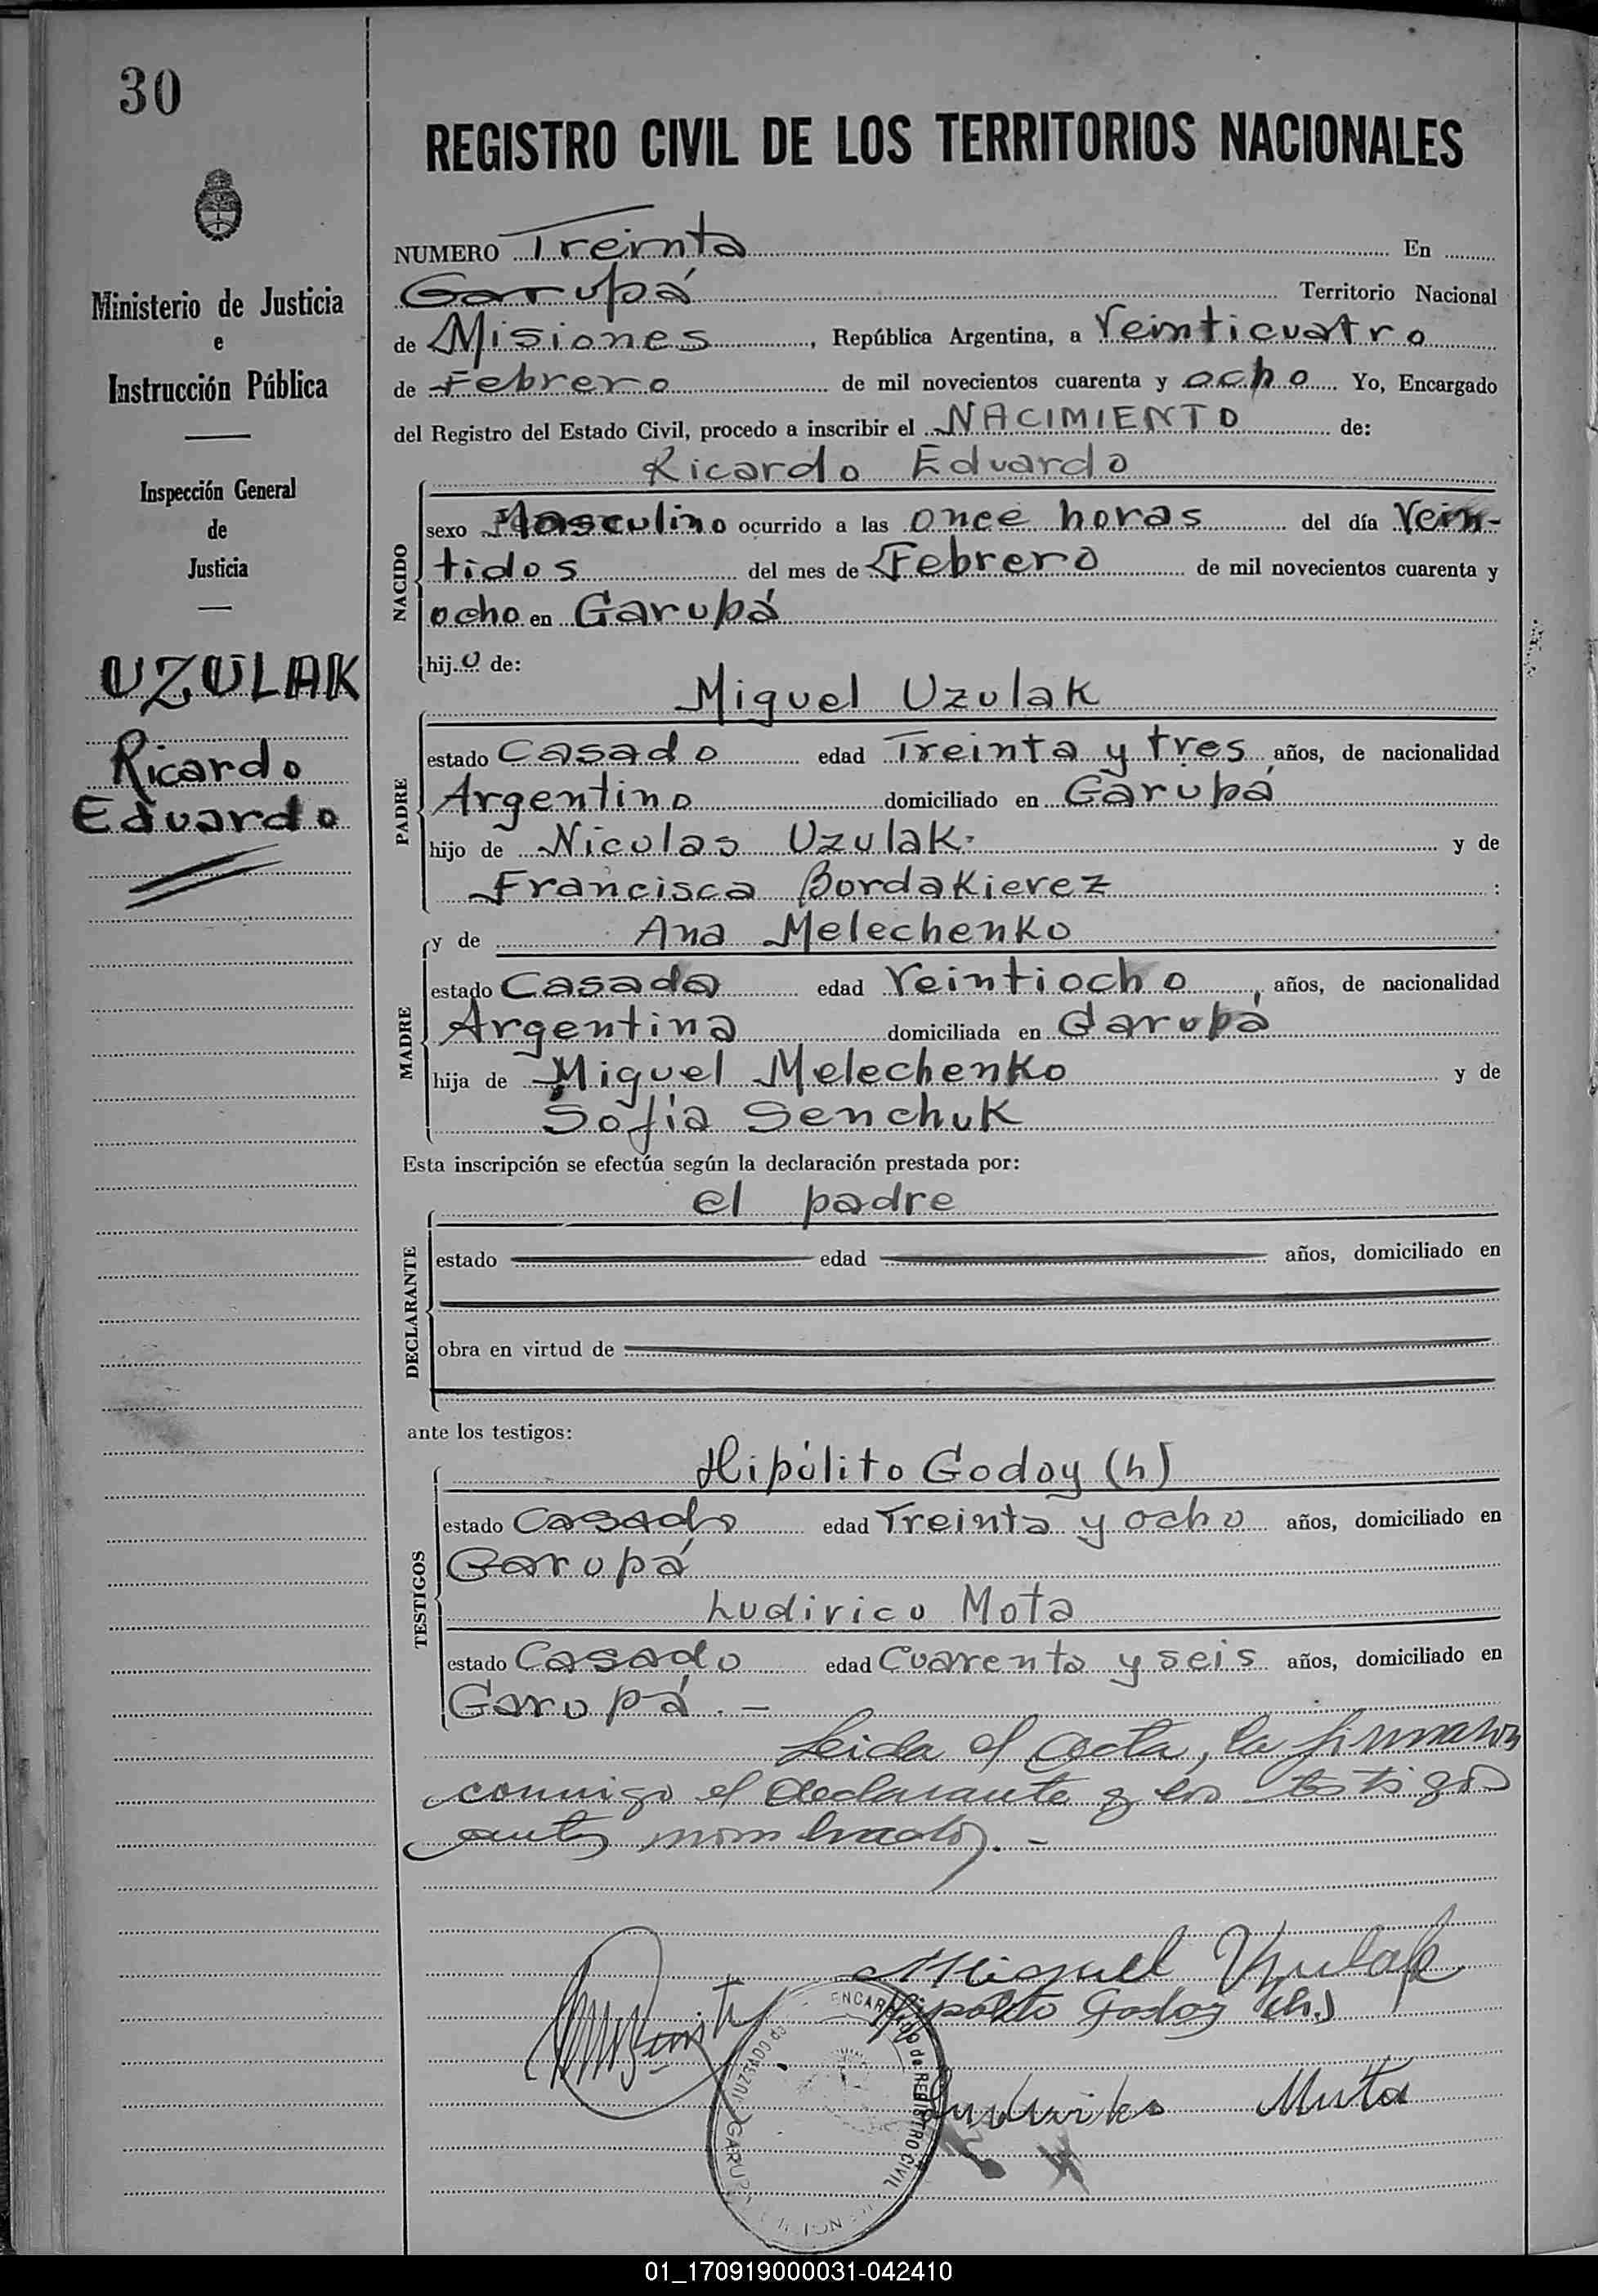 30
REGISTRO CIVIL DE LOS TERRITORIOS NACIONALES
Ministerio de Justicia
e
Instrucción Pública
Inspección General
de
Justicia
UZULAK
Ricardo
Eduardo
NUMERO Treinta En
Garupá Territorio Nacional
de Misiones, República Argentina, a Veinticuatro
de Febrero de mil novecientos cuarenta y ocho Yo, Encargado
del Registro del Estado Civil, procedo a inscribir el NACIMIENTO de:
Ricardo Eduardo
NACIDO
sexo Masculino ocurrido a las once horas del día Vein-
tidos del mes de Febrero de mil novecientos cuarenta y
ocho en Garupá
hijo de:
Miguel Uzulak
PADRE
estado Casado edad Treinta y tres años, de nacionalidad
Argentino domiciliado en Garupá
hijo de Nicolas Uzulak y de
Francisca Bordakierez :
MADRE
y de Ana Melechenko
estado Casada edad Veintiocho, años, de nacionalidad
Argentina domiciliada en Garupá
hija de Miguel Melechenko y de
Sofia Senchuk
Esta inscripción se efectúa según la declaración prestada por:
el padre
DECLARANTE
estado edad años, domiciliado en
obra en virtud de
ante los testigos:
TESTIGOS
Hipólito Godoy (h)
estado Casado edad Treinta y ocho años, domiciliado en
Garupá
Ludirico Mota
estado Casado edad Cuarenta y seis años, domiciliado en
Garupá. —
Leida el acta, la firmaron
conmigo el declarante y los testigos
antes nombrados. -
Miguel Uzulak
Hipólito Godoy (h)
Mota
ENCARGADO de REGISTRO CIVIL
JUZGADO de
GARUPA
01_170919000031-042410